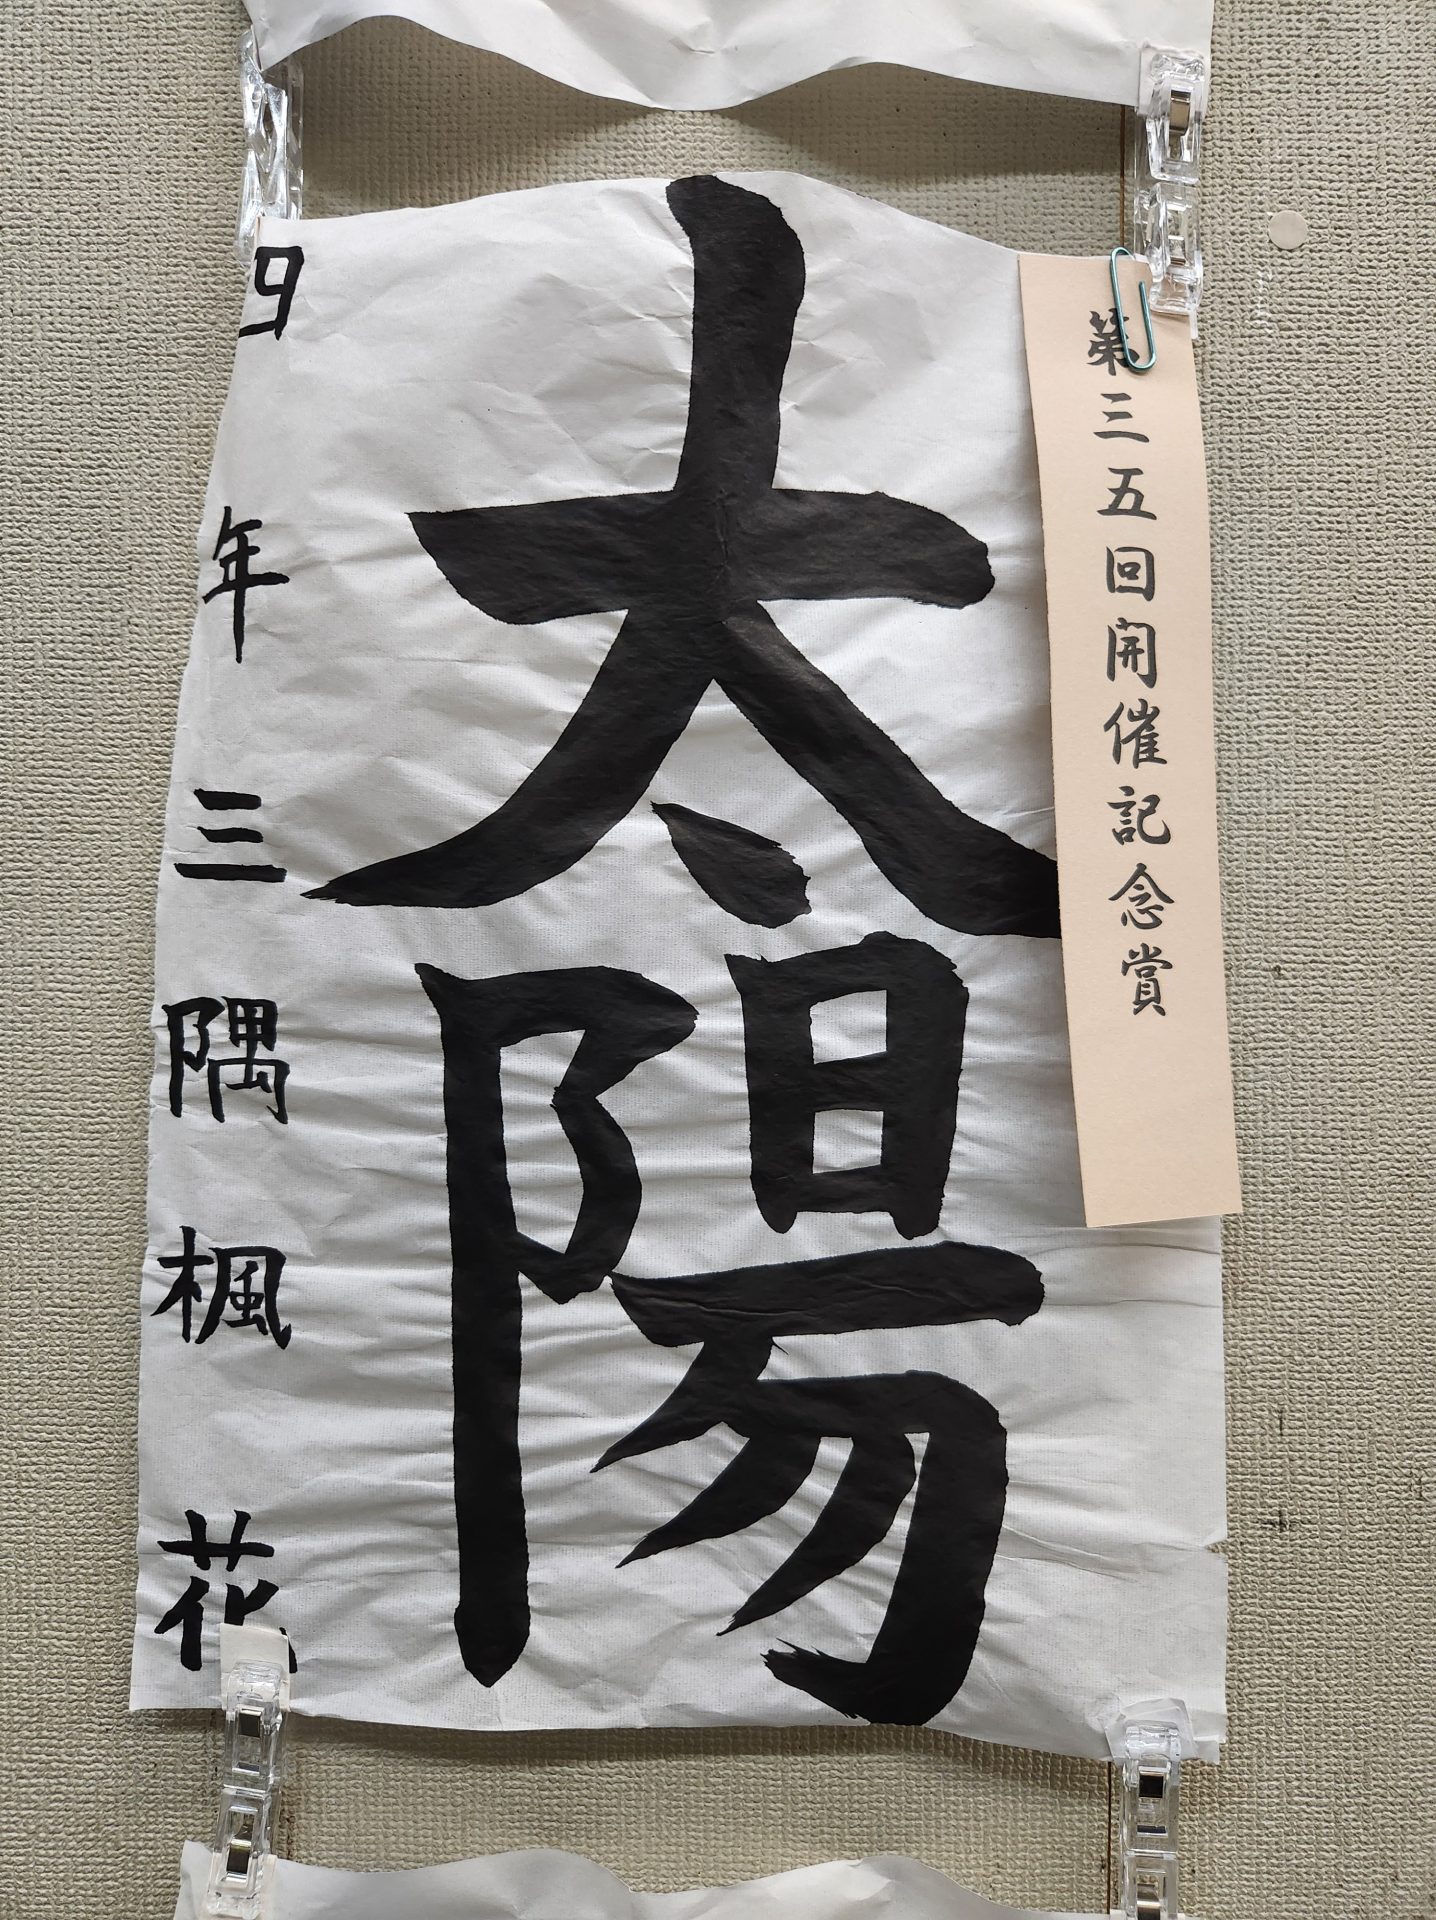 第三五回開催記念賞
太陽
四年三隅楓花